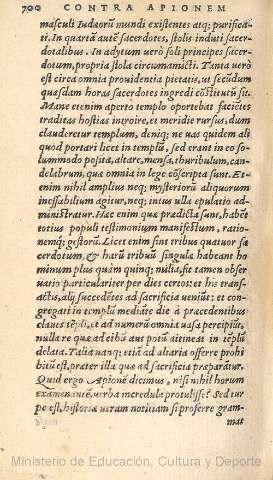 700 CONTRA APIONEM
masculi Iudæorũ mundi existentes atq; purifica-
ti. In quartã autẽ sacerdotes, stolis induti sacer-
dotalibus. In adytum uerò soli principes sacer-
dotum, propria stola circumamicti. Tanta uerò
est circa omnia prouidentia pietatis, ut secũdum
quasdam horas sacerdotes ingredi cõstitutũ sit.
Mane etenim aperto templo oportebat faciẽtes
traditas hostias introire, et meridie rursus, dum
clauderetur templum, deniq; ne uas quidem ali
quod portari licet in templũ, sed erant in eo so-
lummodo posita, altare, mensa, thuribulum, can-
delabrum, quæ omnia in lege cõscripta sunt. Et-
enim nihil amplius neq; mysteriorũ aliquorum
ineffabilium agitur, neq; intus ulla epulatio ad-
ministratur. Hæc enim quæ prædicta sunt, habẽt
totius populi testimonium manifestum, ratio-
nemq; gestorũ. Licet enim sint tribus quatuor sa
cerdotum, & harũ tribuũ singulæ habeant ho
minum plus quàm quinq; milia, fit tamen obser-
uatio particulariter per dies certos: et his trans-
actis, alij succedẽtes ad sacrificia ueniũt: et con-
gregati in templũ mediãte die à præcedentibus
claues tẽpli, et ad numerũ omnia uasa percipiũt,
nulla re quæ ad cibũ aut potũ attineat in tẽplũ
delata. Talia nanq; etiã ad altaria offerre prohi
bitũ est, præter illa quæ ad sacrificia præparãtur.
Quid ergo Apionẽ dicimus, nisi nihil horum
examinantẽ, uerba incredula protulisse? Sed tur
pe est, historiæ ueram notitiam si proferre gram-
mat
Ministerio de Educación, Cultura y Deporte